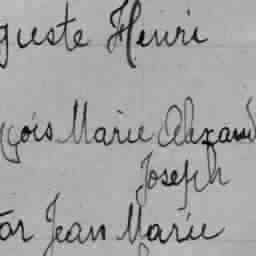 guste Henri
çois Marie Alexand
Joseph
tor Jean Marie